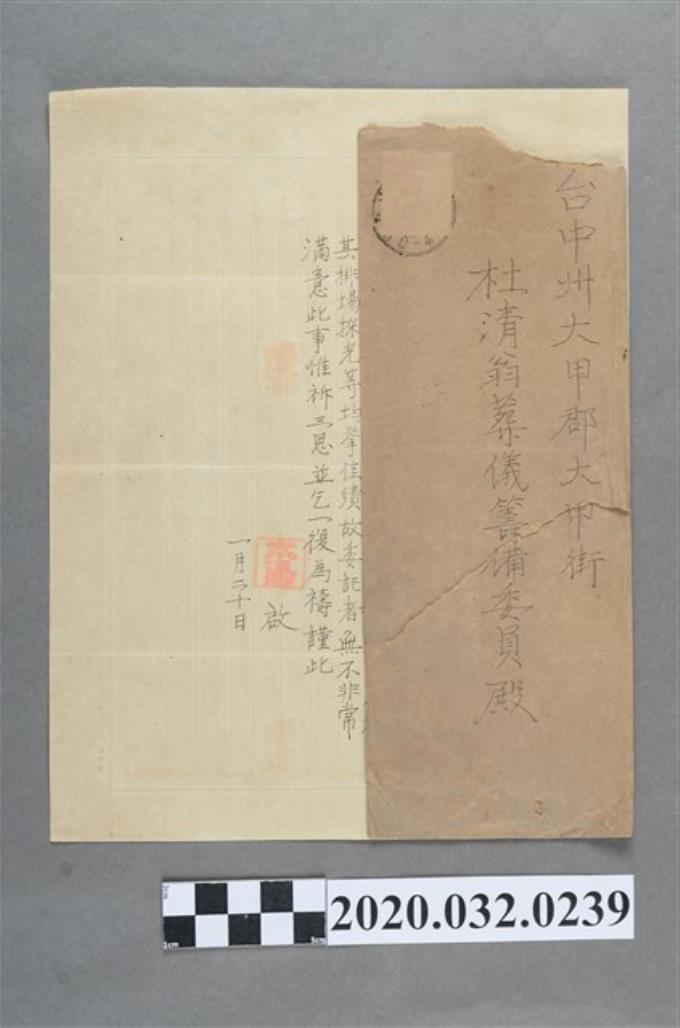 台中州大甲郡大甲街
杜清翁葬儀籌備委員殿
其排場採光等均拳佳績故委託者無不非常
滿意此事惟祈三思並乞一復為禱謹此
啟
一月二十日
0-4
3
1cm
5cm
2020.032.0239